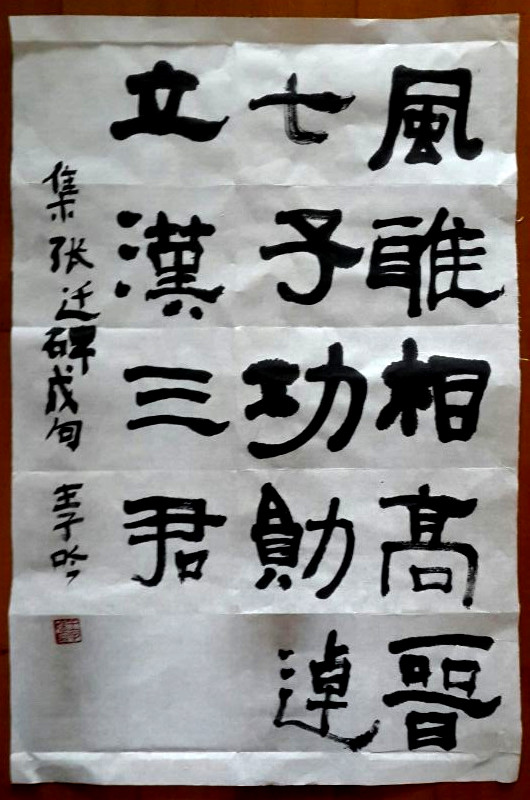 風雅相高晉
七子功勛逴
立漢三君
集张迁碑成句